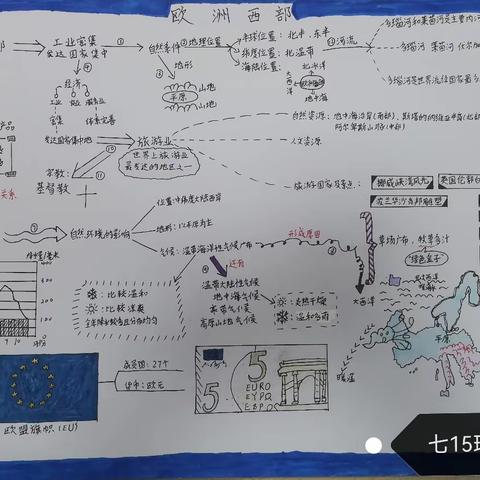 欧洲西部
工业密集
发达国家集中
①
自然条件
②地理位置
半球位置：北半、东半
纬度位置：北温带
海陆位置：
北冰洋
大西洋
地中海
⑪河流
多瑙河和莱茵河是主要内河
多瑙河 莱茵河
多瑙河是世界流经国家最多
③
地形
山地
平原
山地
④
经济
工业
农业
服务业
密集
体系完善
发达国家集中地
旅游业
世界上旅游业
最发达的地区之一
自然资源：地中海沿岸(南部)、斯堪的纳维亚半岛(北部)
阿尔卑斯山脉(中部)
人文资源
旅游国家及景点：
挪威峡湾风光
英国伦敦白
产品
关系
宗教：
基督教
⑩
自然环境的影响
位置：中纬度大陆西岸
地形：以平原为主
气候：温带海洋性气候广布
形成原因
草场广布，牧草多汁
绿色盒子
大西洋
还有
温带大陆性气候
地中海气候
寒带气候
高原山地气候
：炎热干燥
：温和多雨
：比较温和
：比较凉爽
全年降水较多且分布均匀
降水量/毫米
600
400
200
0
9 10
月份
成员国：27个
货币：欧元
欧盟旗帜(EU)
5
5
EURO
ΕΥΡΩ
ЕВРО
平原
暖流
七15班